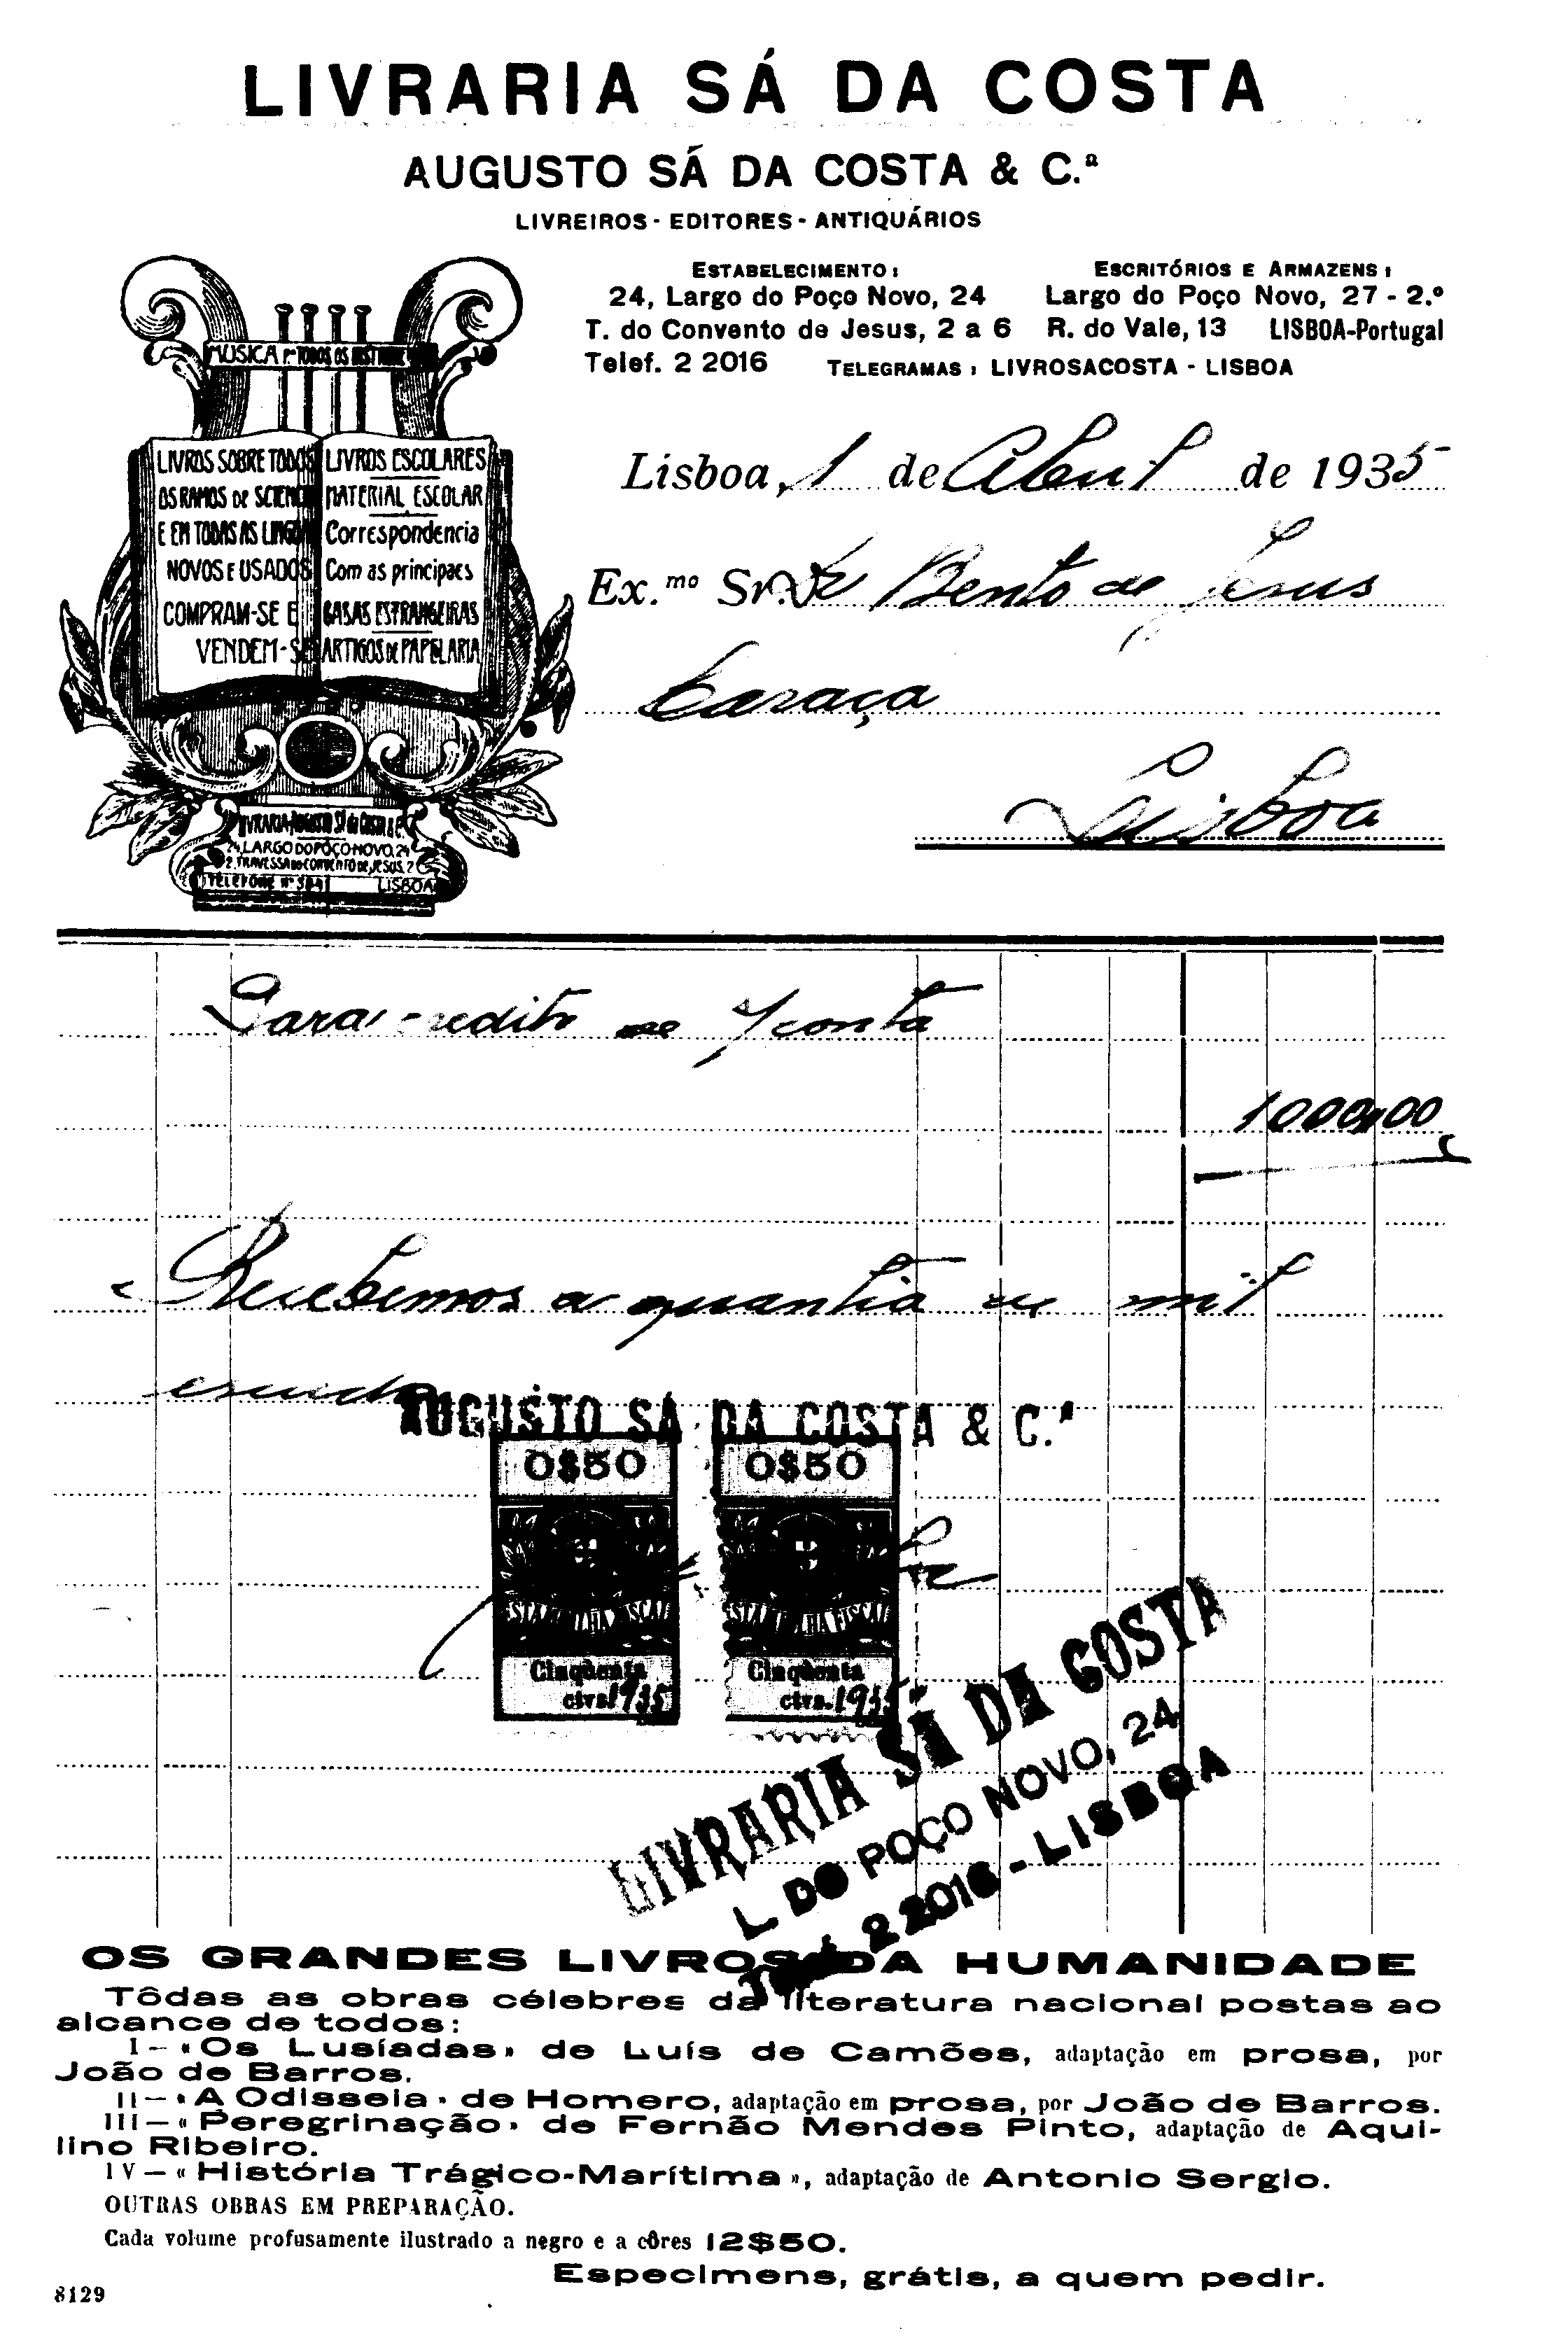 LIVRARIA SÁ DA COSTA
AUGUSTO SÁ DA COSTA & C.ª
LIVREIROS - EDITORES - ANTIQUÁRIOS
ESTABELECIMENTO :
24, Largo do Poço Novo, 24
T. do Convento de Jesus, 2 a 6
Telef. 2 2016
ESCRITÓRIOS E ARMAZENS :
Largo do Poço Novo, 27 - 2.º
R. do Vale, 13 LISBOA-Portugal
TELEGRAMAS : LIVROSACOSTA - LISBOA
MUSICA PARA TODOS OS
LIVROS SOBRE TODOS
OS RAMOS DE SCIENCIA
E EM TODAS AS LINGUAS
NOVOS E USADOS
COMPRAM-SE E
VENDEM-SE
LIVROS ESCOLARES
MATERIAL ESCOLAR
Correspondencia
Com as principaes
CASAS ESTRANGEIRAS
ARTIGOS DE PAPELARIA
LIVRARIA AUGUSTO SÁ DA COSTA & C.ª
24, LARGO DO POÇO NOVO, 24
2, TRAVESSA DO CONVENTO DE JESUS, 2
TELEFONE Nº LISBOA
Lisboa, 1 de Abril de 1935
Ex.mo Sr. Dr Bento de Jesus
Caraça
Lisboa
Para credito de s/conta
1000,00
Recebemos a quantia de mil
escudos
AUGUSTO SÁ DA COSTA & C.ª
0$50 0$50
ESTAMPILHA FISCAL ESTAMPILHA FISCAL
Cinqüenta Cinqüenta
ctvs. 1935 ctvs. 1935
LIVRARIA SÁ DA COSTA
L. DO POÇO NOVO, 24
Telef. 2 2016 - LISBOA
OS GRANDES LIVROS DA HUMANIDADE
Tôdas as obras célebres da literatura nacional postas ao
alcance de todos:
I — «Os Lusíadas» de Luís de Camões, adaptação em prosa, por
João de Barros.
II — «A Odisseia» de Homero, adaptação em prosa, por João de Barros.
III — «Peregrinação» de Fernão Mendes Pinto, adaptação de Aqui-
lino Ribeiro.
IV — «História Trágico-Marítima», adaptação de Antonio Sergio.
OUTRAS OBRAS EM PREPARAÇÃO.
Cada volume profusamente ilustrado a negro e a côres 12$50.
Especimens, grátis, a quem pedir.
8129